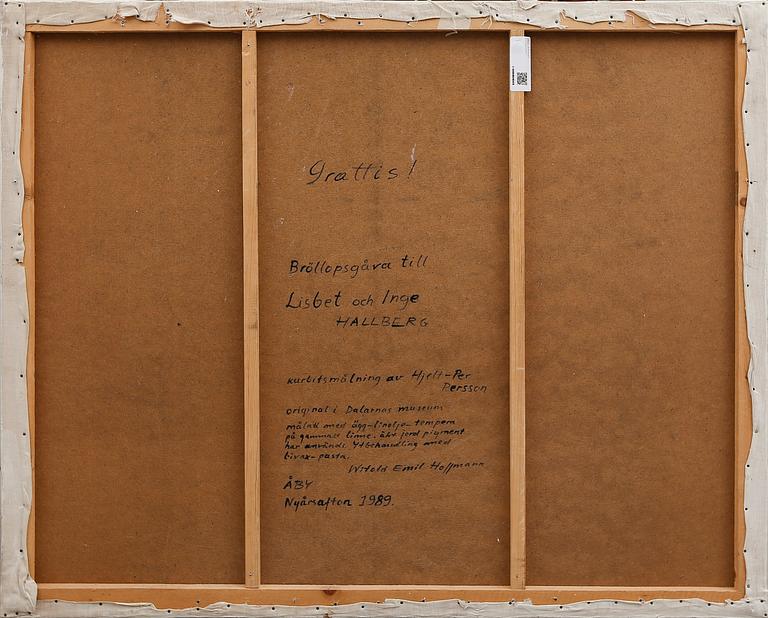 Grattis!
Bröllopsgåva till
Lisbet och Inge
HALLBERG
kurbitsmålning av Hjelt-Per
Persson
original i Dalarnas museum
målad med ägg-linolje-tempera
på gammalt linne. äkt jord pigment
har använts. Ytbehandling med
bivax-pasta.
Witold Emil Hoffmann
ÅBY
Nyårsafton 1989.